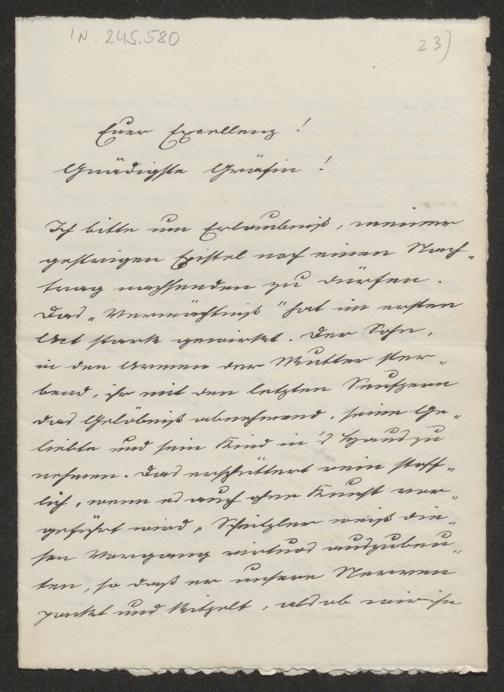 IN. 245.580
23)
Euer Excellenz!
Gnädigste Gräfin!
Ich bitte um Erlaubniß, meiner
gestrigen Epistel noch einen Nach-
trag nachsenden zu dürfen.
Das „Vermächtniß" hat im ersten
Act stark gewirkt. Der Sohn,
in den Armen der Mutter ster-
bend, ihr mit den letzten Seufzern
das Gelöbniß abnehmend, seine Ge-
liebte und sein Kind in's Haus zu
nehmen. Das erschüttert rein stoff-
lich, wenn es auch ohne Kunst vor-
geführt wird. Schnitzler weiß die-
sen Vorgang virtuos auszubeu-
ten, so daß er unsere Nerven
packt und kitzelt, als ob wir ihn